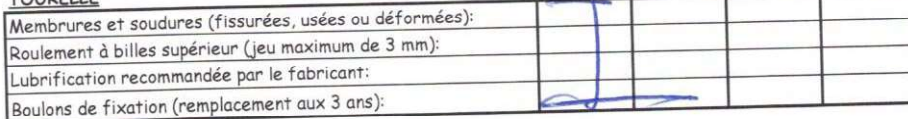 TOURELLE
Membrures et soudures (fissurées, usées ou déformées):
Roulement à billes supérieur (jeu maximum de 3 mm):
Lubrification recommandée par le fabricant:
Boulons de fixation (remplacement aux 3 ans):